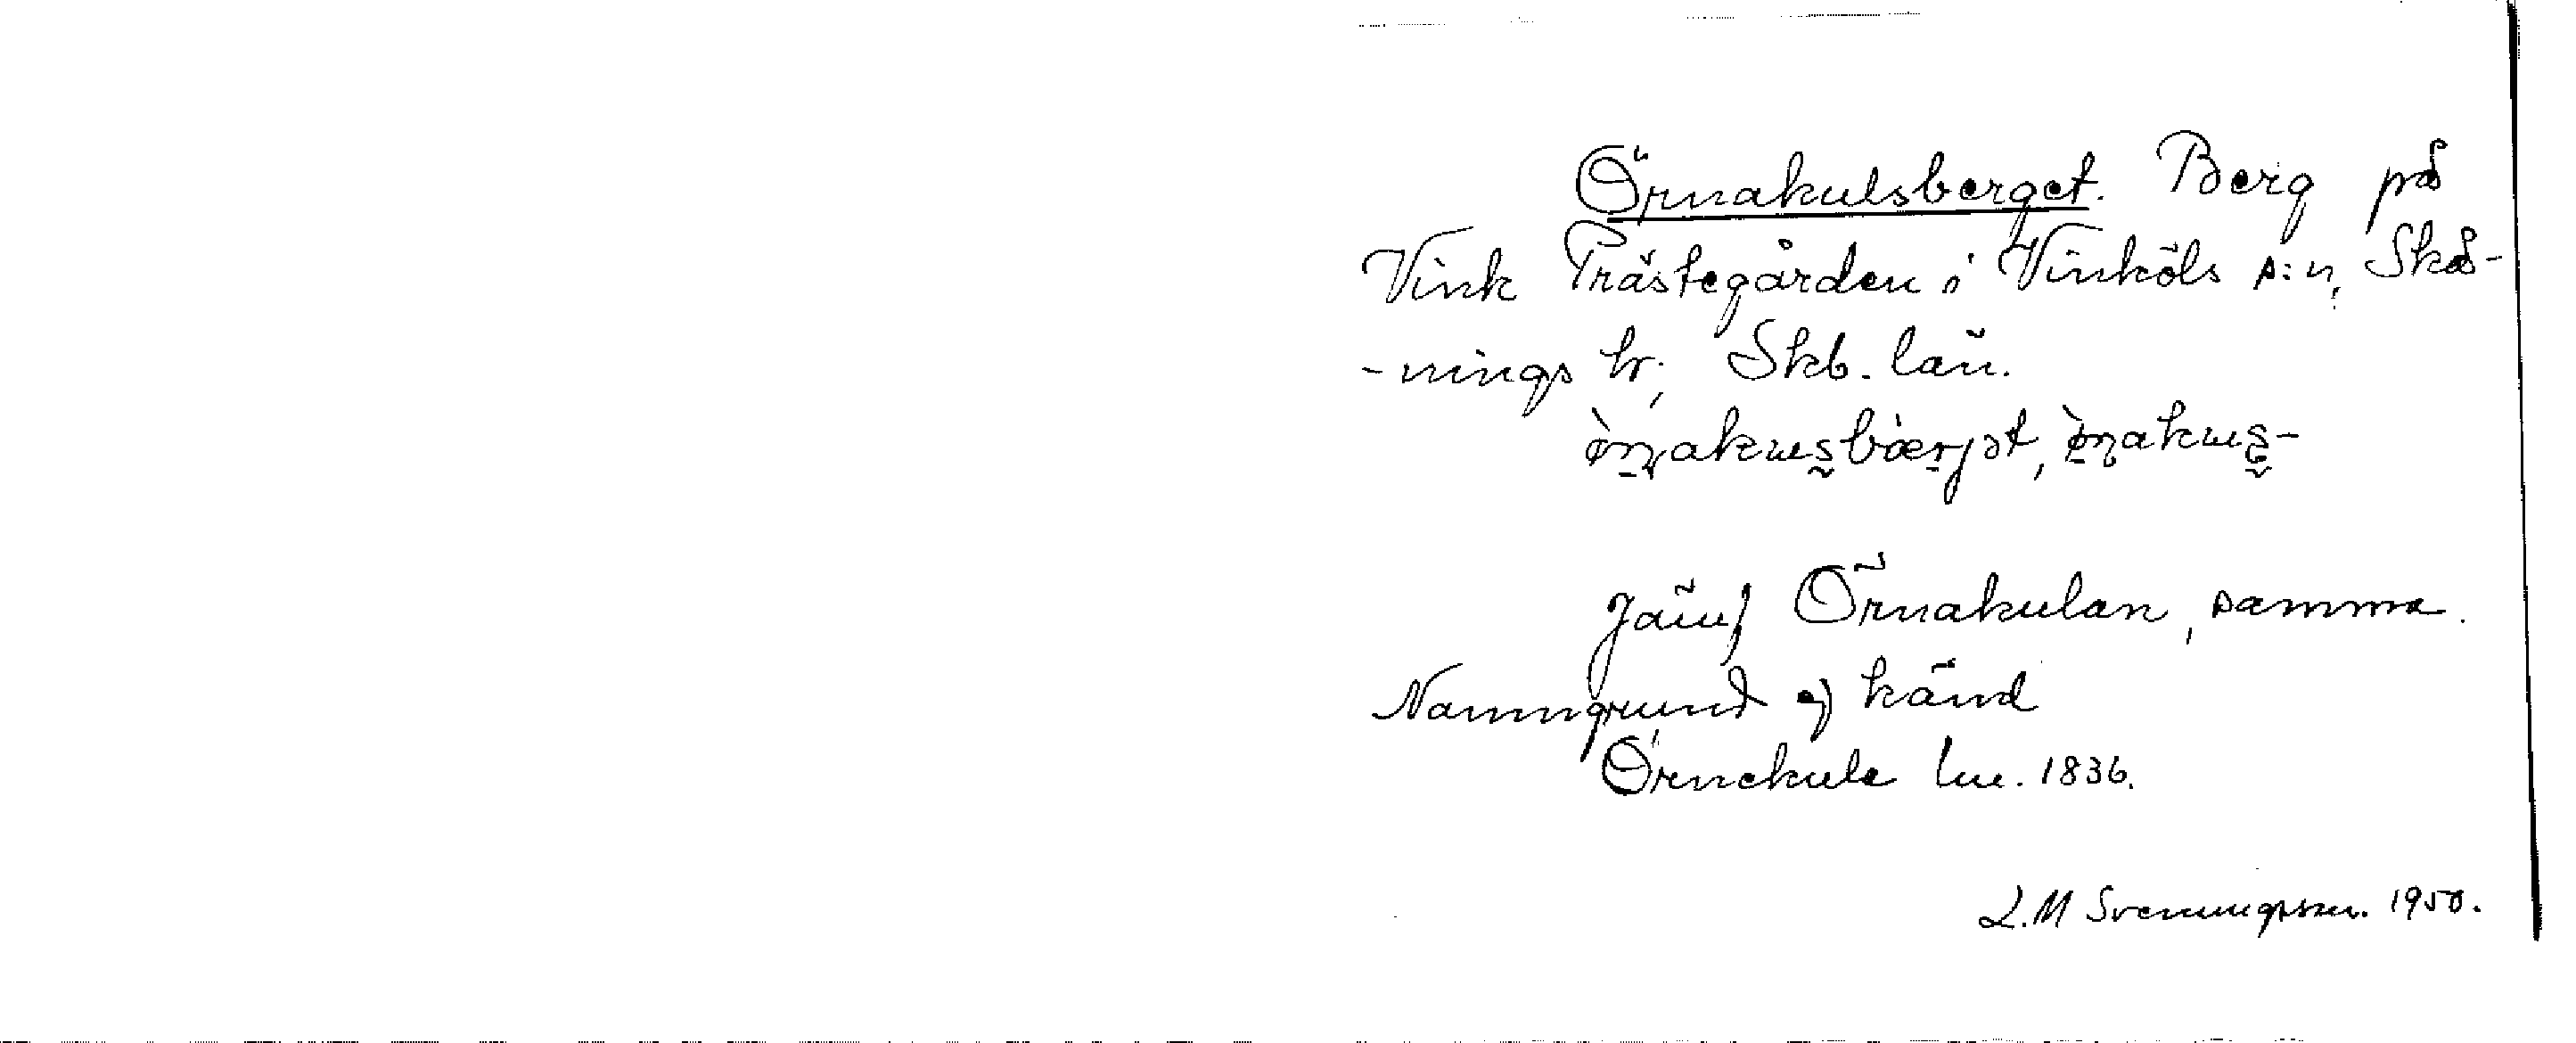 Örnakulsberget. Berg på
Vink Prästegården i Vinköls s:n, Skå-
-nings hr, Skb. län.
Jämf Örnakulan, samma.
Namngrund ej känd
Örnekula lm. 1836.
L.M Svenungsson. 1950.